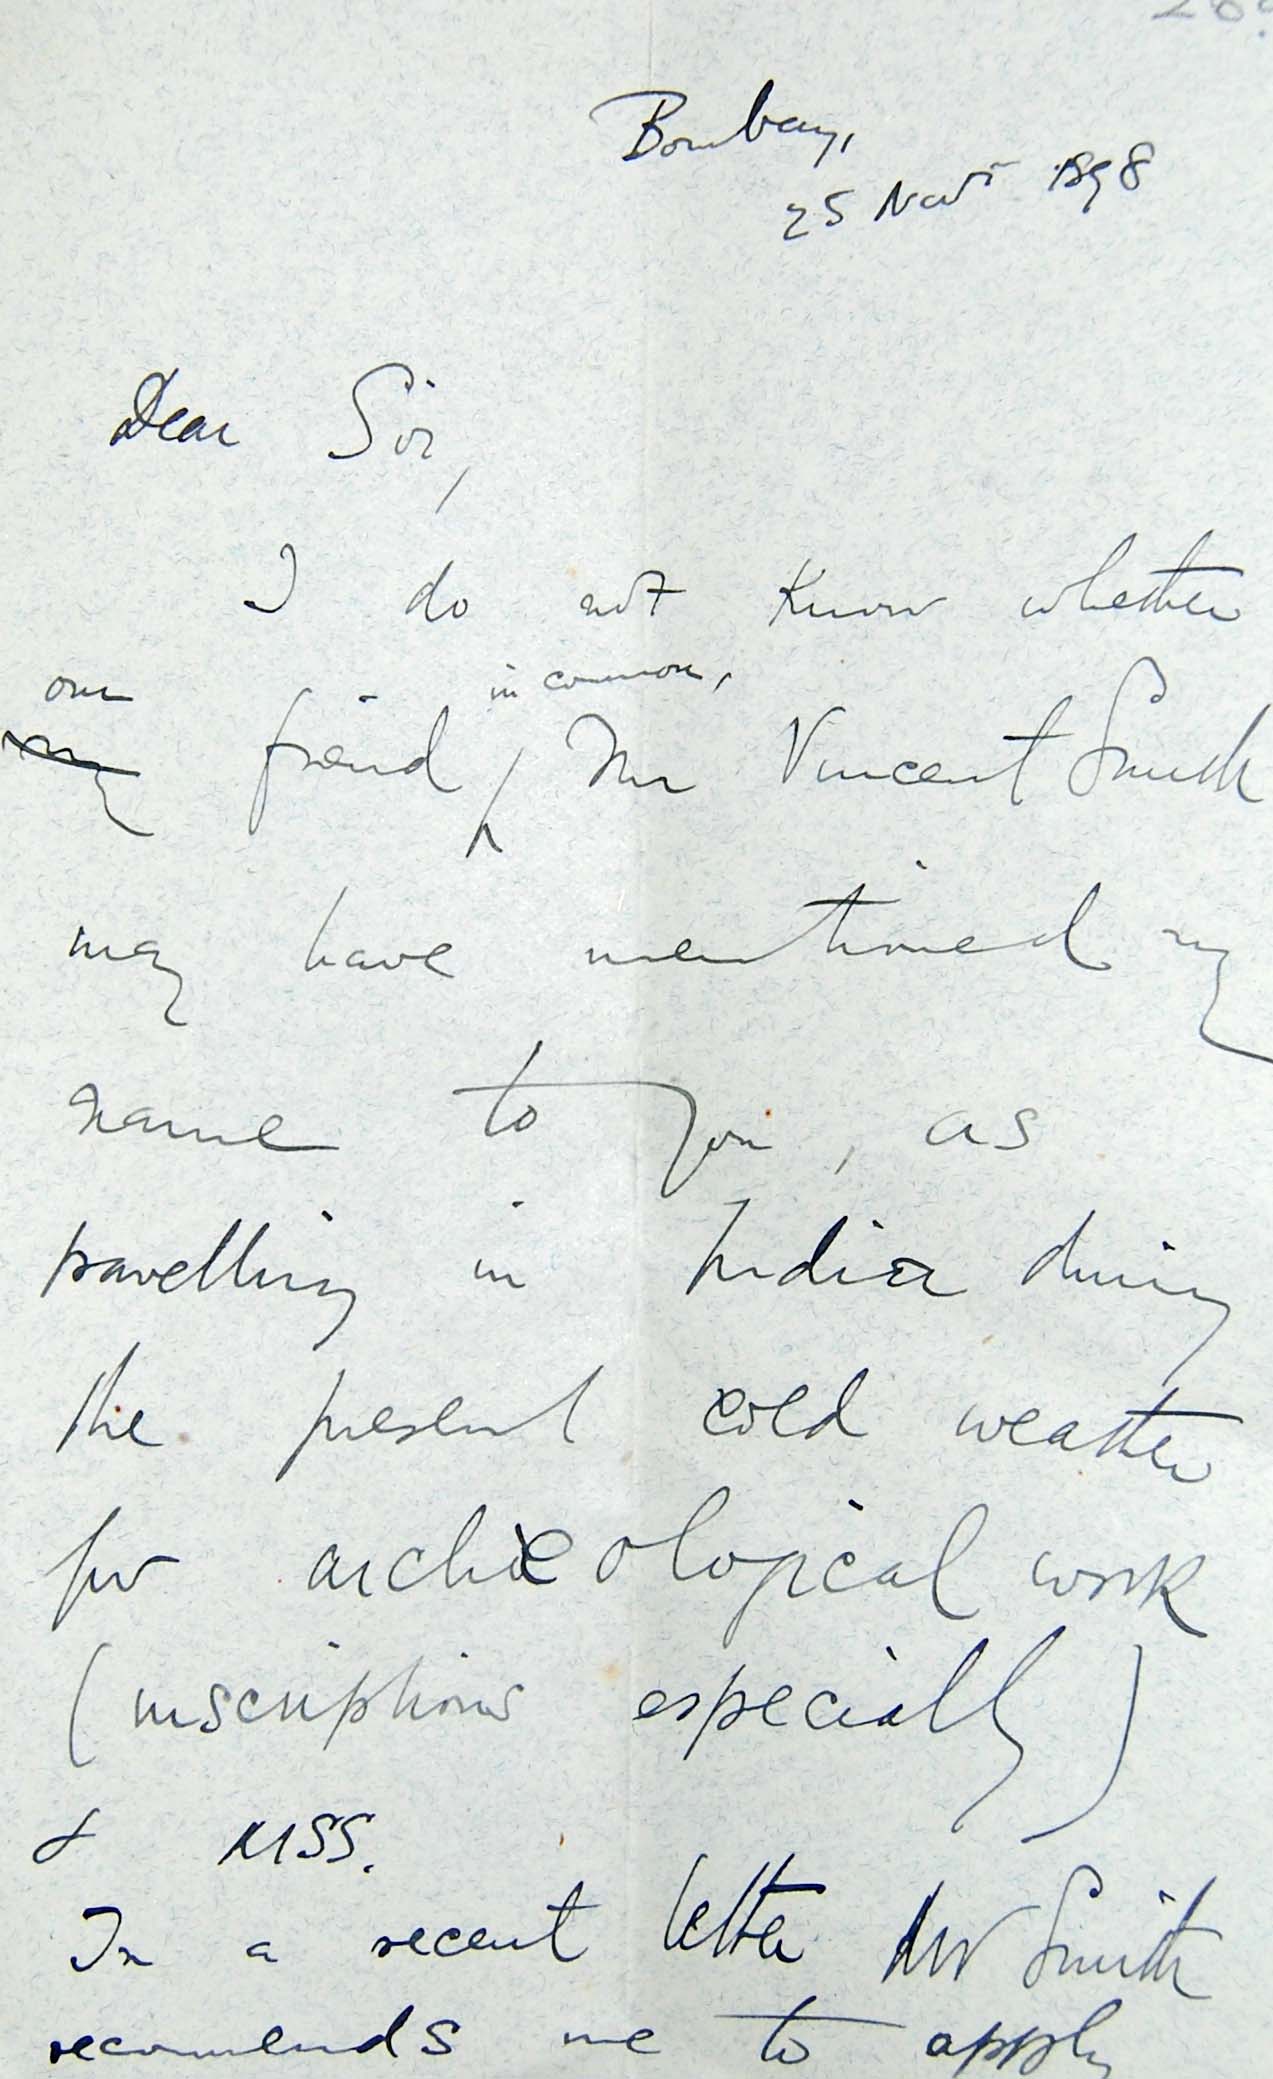 Bombay,
25 Novr 1898
Dear Sir,
I do not know whether
our in common,
my friend, Mr Vincent Smith
may have mentioned my
name to you, as
travelling in India during
the present cold weather
for archæological work
(inscriptions especially)
& MSS.
In a recent letter Mr Smith
recomends me to apply